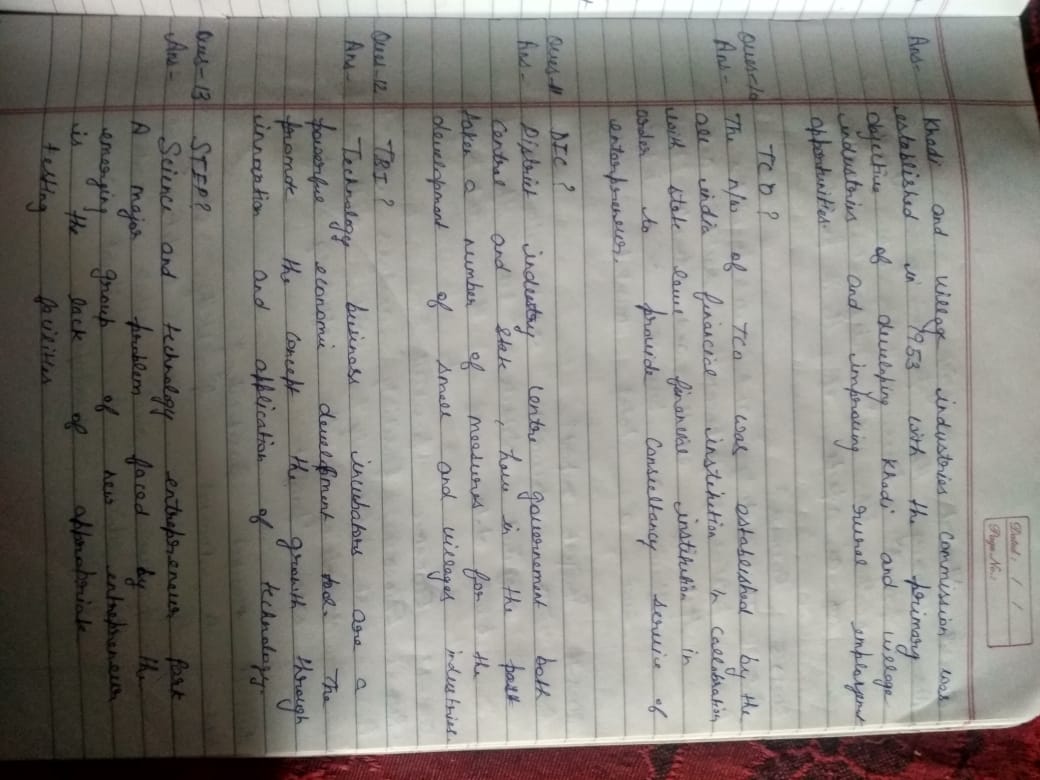 Dated: / /
Page No.:
Ans- Khadi and village industries Commission was
established in 1953 with the primary
objective of developing Khadi and village
industries and improving rural employment
opportunities.
Ques-10 TCO?
Ans- The n/w of TCO was established by the
all india financial institution in callobration
with state level financial institution in
order to provide Consultancy service of
enterpreneur.
Ques-11 DIC?
Ans- District industry centre governement both
central and state, have in the past
taken a number of measures for the
development of small and villages industries.
Ques-12 TBI?
Ans- Technology business incubators are a
powerful economic development tool. The
promote the concept the growth through
innovation and application of technology.
Ques-13 STEP?
Ans- Science and technology entrepreneur Park
A major problem faced by the
emerging group of new entrepreneur
is the lack of appropriate
testing facilities